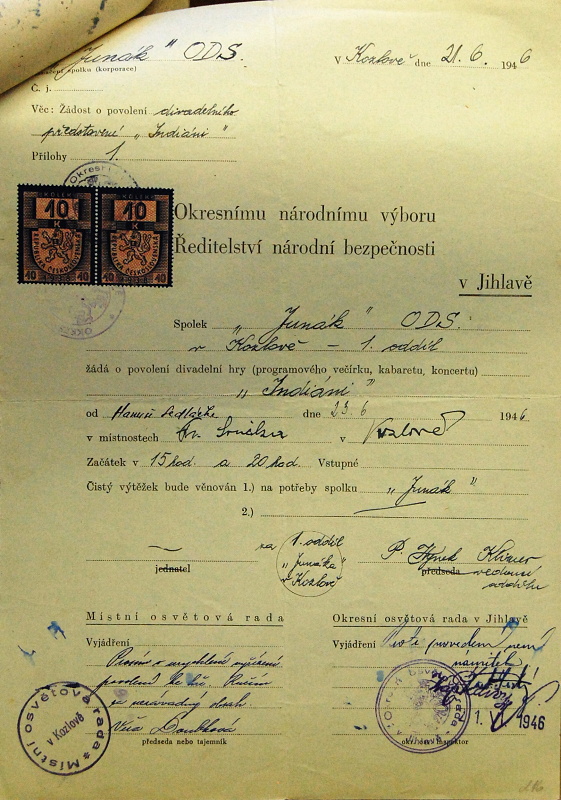 „Junák" ODS.
spolku (korporace)
V Kozlově dne 21.6. 1946
Č. j.
Věc: Žádost o povolení divadelního
představení „Indiáni"
Přílohy 1.
KOLEK KOLEK
10 10
K K
REPUBLIKA ČESKOSLOVENSKÁ REPUBLIKA ČESKOSLOVENSKÁ
10 10 10 10
Okresnímu národnímu výboru
Ředitelství národní bezpečnosti
v Jihlavě
Spolek „Junák" ODS.
v Kozlově – 1. oddíl
žádá o povolení divadelní hry (programového večírku, kabaretu, koncertu)
„Indiáni"
od Hanuš Sedláček dne 23.6 1946
v místnostech v Kozlově
Začátek v 15 hod. a 20 hod. Vstupné
Čistý výtěžek bude věnován 1.) na potřeby spolku „Junák"
2.)
za 1. oddíl
„Junáka"
v Kozlově
P. Hynek
jednatel
předseda vedoucí
oddílu
Místní osvětová rada
Okresní osvětová rada v Jihlavě
Vyjádření
Vyjádření Proti provedení není
námitek
Prosím o urychlené vyřízení
povolení
je nezávadný obsah.
Věra Doubková
předseda nebo tajemník
Místní osvětová rada
v Kozlově
1. 1946
okresní inspektor